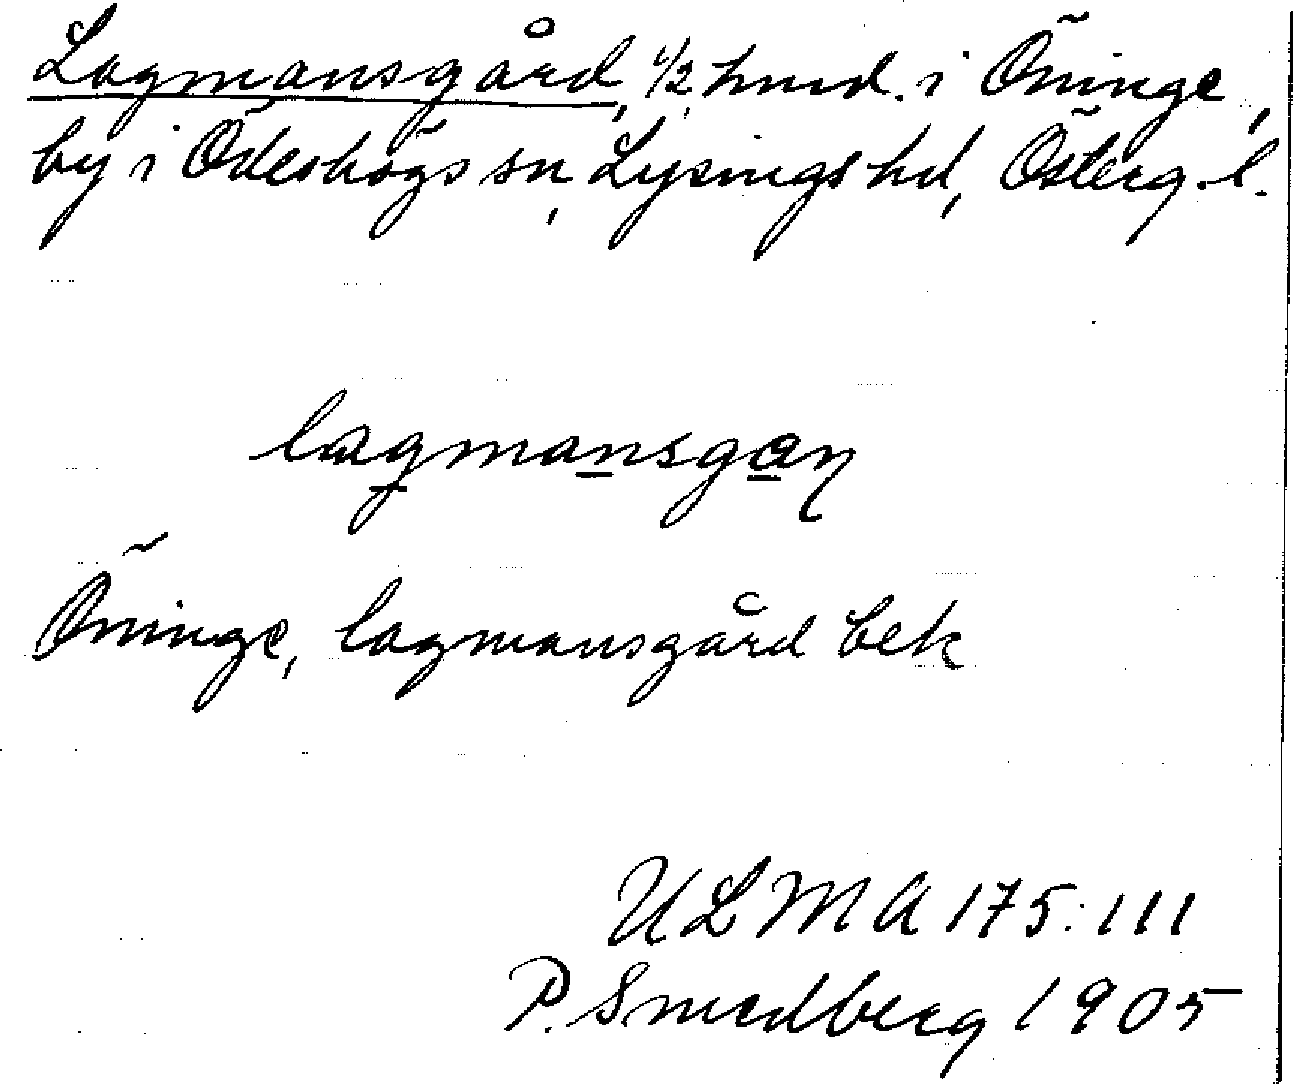 Lagmansgård, 1/2 hmd. i Öninge,
by i Ödeshögs sn, Lysings hd, Österg. l.
lagmansgan
Öninge, lagmansgård bek
ULMA 175:111
P. Smedberg 1905